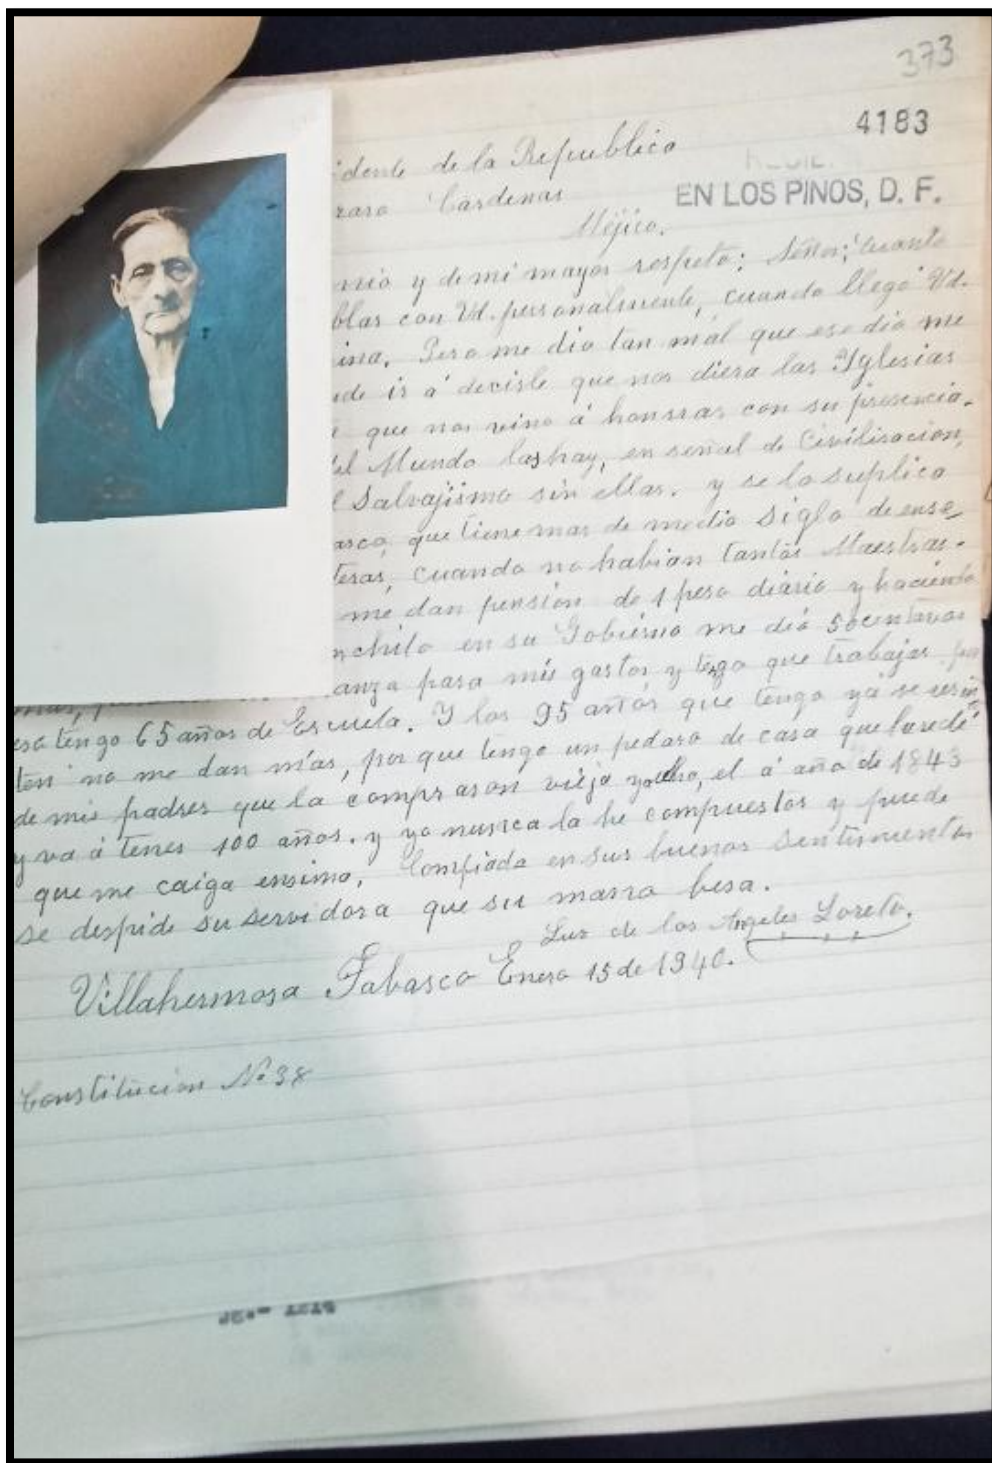 373
4183
idente de la Republica
zaro Cardenas
EN LOS PINOS, D. F.
Méjico.
mio y de mi mayor respeto; Señor; Cuanto
blar con Vd. personalmente, cuando llegó Vd.
ina. Pero me dio tan mal que ese dia me
ude ir á decirle que nos diera las Yglesias
que nos vino á honrrar con su presencia.
el Mundo las hay, en señal de Civilisacion,
l Salvajismo sin ellas. y se lo suplica
asco, que tiene mas de medio Siglo de ense
teras, cuando no habian tantas Maestras.
me dan pension de 1 peso diário y haciendo
nchito en su Gobierno me dió 50 centavos
anza para mis gastos y tego que trabajar
eso tengo 65 años de Escuela. Y los 95 años que tengo yá se
ten no me dan más, por que tengo un pedaso de casa que heredé
de mis padres que la compraron vieja el á año de 1843
y va á tener 100 años. y yo nunca la he compuestos y puede
que me caiga ensima. Comfiada en sus buenos Sentimientos
se despide su servidora que su mano besa.
Luz de los Angeles Loreto.
Villahermosa Tabasco Enero 15 de 1940.
Constitucion No 38